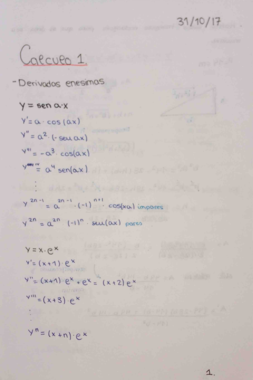 31/10/17
CALCULO 1
- Derivadas enesimas
y = sen a·x
y' = a · cos (ax)
y'' = a² · (-sen ax)
y''' = -a³ cos(ax)
y'''' = a⁴ sen(ax)
⋮
y²ⁿ⁻¹ = a²ⁿ⁻¹ · (-1)ⁿ⁺¹ · cos(xa) impares
y²ⁿ = a²ⁿ · (-1)ⁿ sen(ax) pares
y = x · eˣ
y' = (x+1) · eˣ
y'' = (x+1) · eˣ + eˣ = (x+2) eˣ
y''' = (x+3) · eˣ
⋮
yⁿ = (x+n) · eˣ
1.